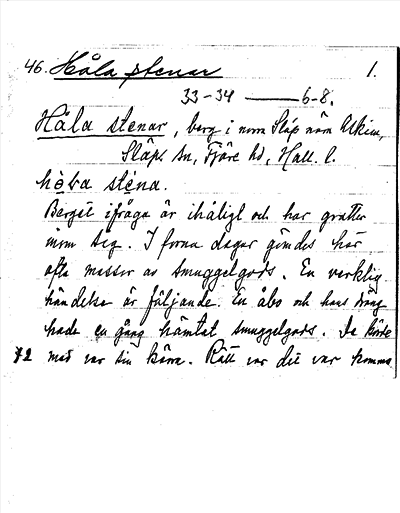 46. Håla stenar 1.
33-34 — 6-8.
Håla stenar, berg i norra Släp nära Ukina,
Släps sn, Fjäre hd, Hall. l.
hè̱ḷa stè̱na.
Berget ifråga är ihåligt och har grottor
inom sig. I forna dagar gömdes här
ofta massor av smuggelgods. En verklig
händelse är följande. En åbo och hans dräng
hade en gång hämtat smuggelgods. De körde
72 med var sin kärra. Rätt var det var komma